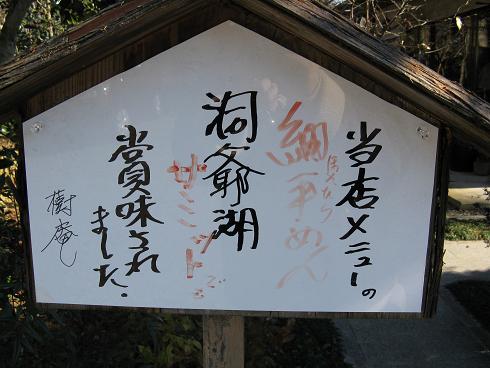 当店メニューの
細平めん
洞爺湖
サミットで
賞味され
ました。
樹庵